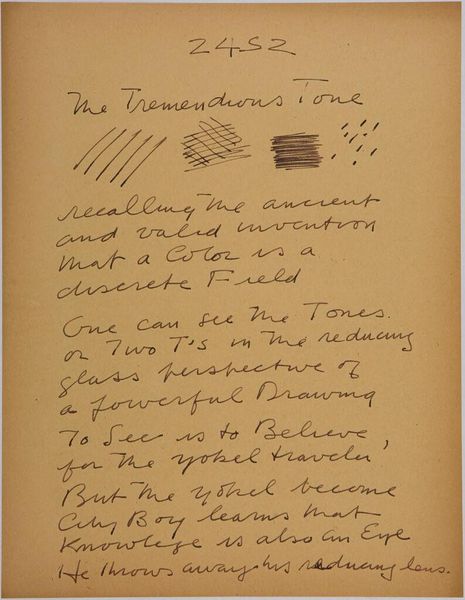 2452
The Tremendious Tone
recalling the ancient
and valid invention
that a Color is a
discrete Field
One can see the Tones.
or Two T's in the reducing
glass perspective of
a powerful Drawing
To See is to Believe,
for the yokel traveler
But the yokel become
City Boy learns that
Knowlege is also an Eye
He throws away his reducing lens.